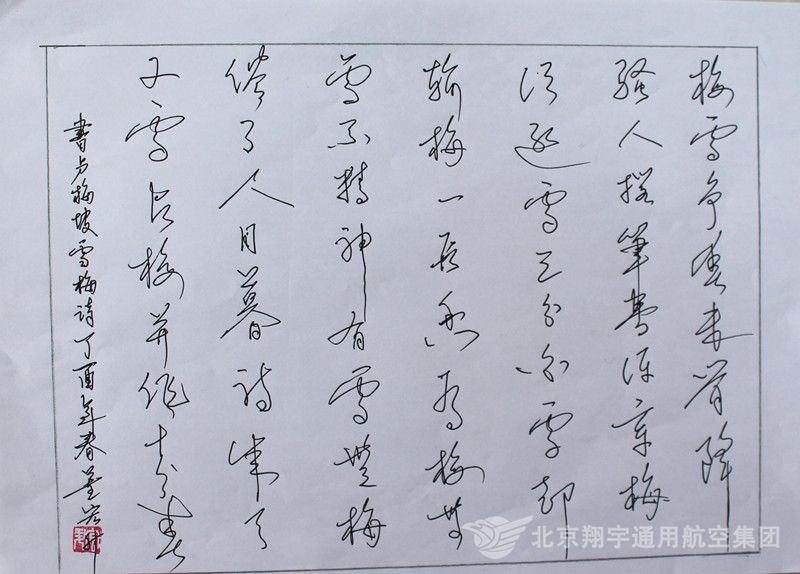 梅雪争春未肯降
骚人搁笔费评章梅
须逊雪三分白雪却
输梅一段香有梅无
雪不精神有雪无梅
俗了人日暮诗成天
又雪与梅并作十分春
書卢梅坡雪梅诗丁酉年春
北京翔宇通用航空集团